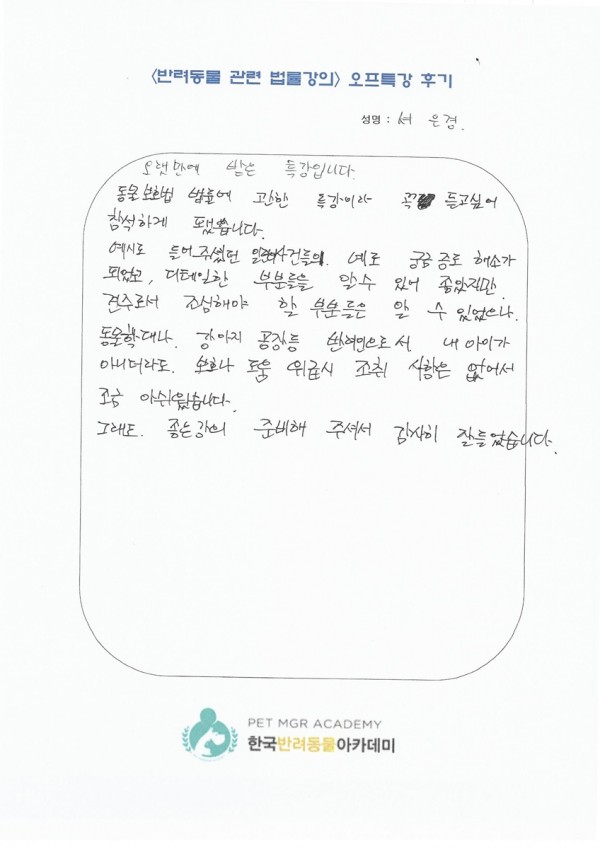 <반려동물 관련 법률강의> 오프특강 후기
성명 : 서 은경.
오랫만에 받은 특강입니다.
동물보호법 법률에 관한 특강이라 꼭 듣고싶어
참석하게 됐습니다.
예시로 들어주셨던 일련사건들의. 예로 궁금증도 해소가
되었고, 디테일한 부분들을 알수 있어 좋았지만.
견주로서 조심해야 할 부분들은 알 수 있었으나.
동물학대나. 강아지 공장등 반려인으로서. 내 아이가
아니더라도. 보호나 도움 위급시 조취 사항은 없어서
조금 아쉬웠습니다.
그래도. 좋은강의 준비해 주셔서 감사히 잘들었습니다.
PET MGR ACADEMY
한국반려동물아카데미